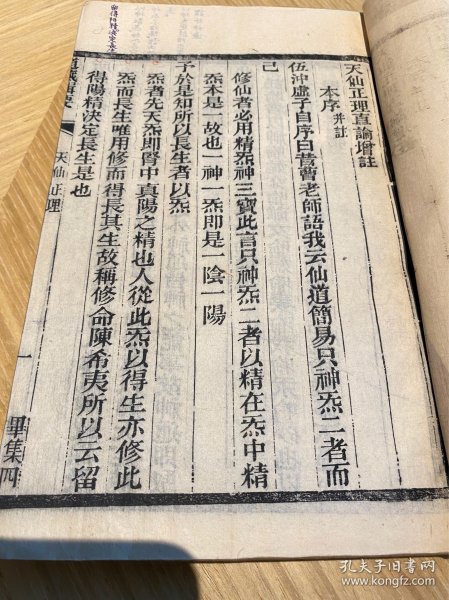 天仙正理直論增註
本序 并註
伍沖虛子自序曰昔曹老師語我云仙道簡易只神炁二者而
已
修仙者必用精炁神三寶此言只神炁二者以精在炁中精
炁本是一故也一神一炁即是一陰一陽
予於是知所以長生者以炁
炁者先天炁即腎中真陽之精也人從此炁以得生亦修此
炁而長生唯用修而得長其生故稱修命陳希夷所以云留
得陽精決定長生是也
道藏輯要 天仙正理 一 畢集四
孔夫子旧书网
www.kongfz.com